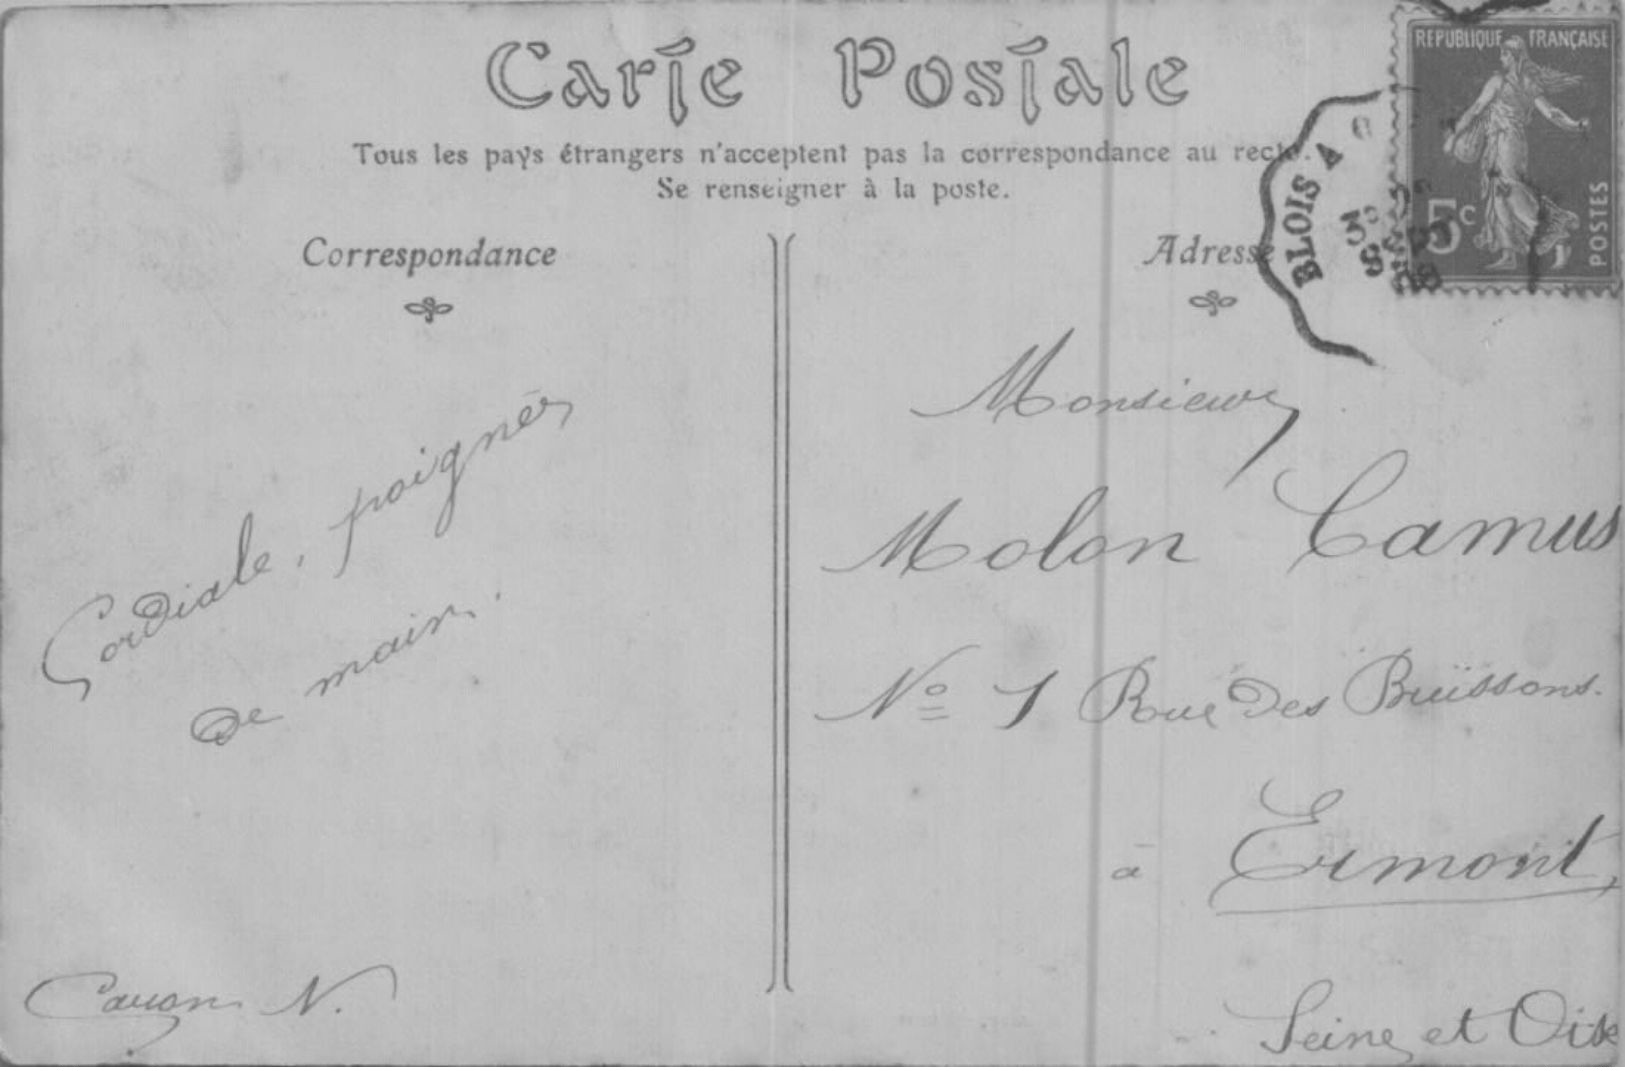 Carte Postale
Tous les pays étrangers n'acceptent pas la correspondance au recto.
Se renseigner à la poste.
Correspondance
Adresse
REPUBLIQUE FRANÇAISE
5c
POSTES
BLOIS A
Cordiale, poignées
de main.
N.
Monsieur
Molon Camus
No 1 Rue des Buïssons.
à Ermont,
Seine et Oise